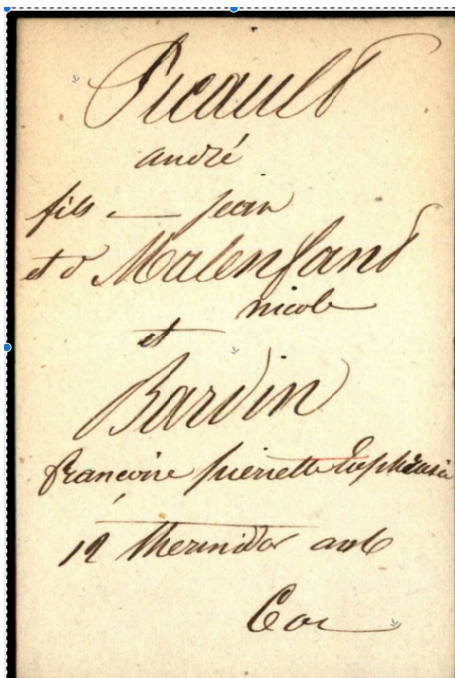 Picault
andré
fils — jean
et d Malenfant
nicole
et
Bardin
françoise pierrette Euphrasie
12 thermidor an 6